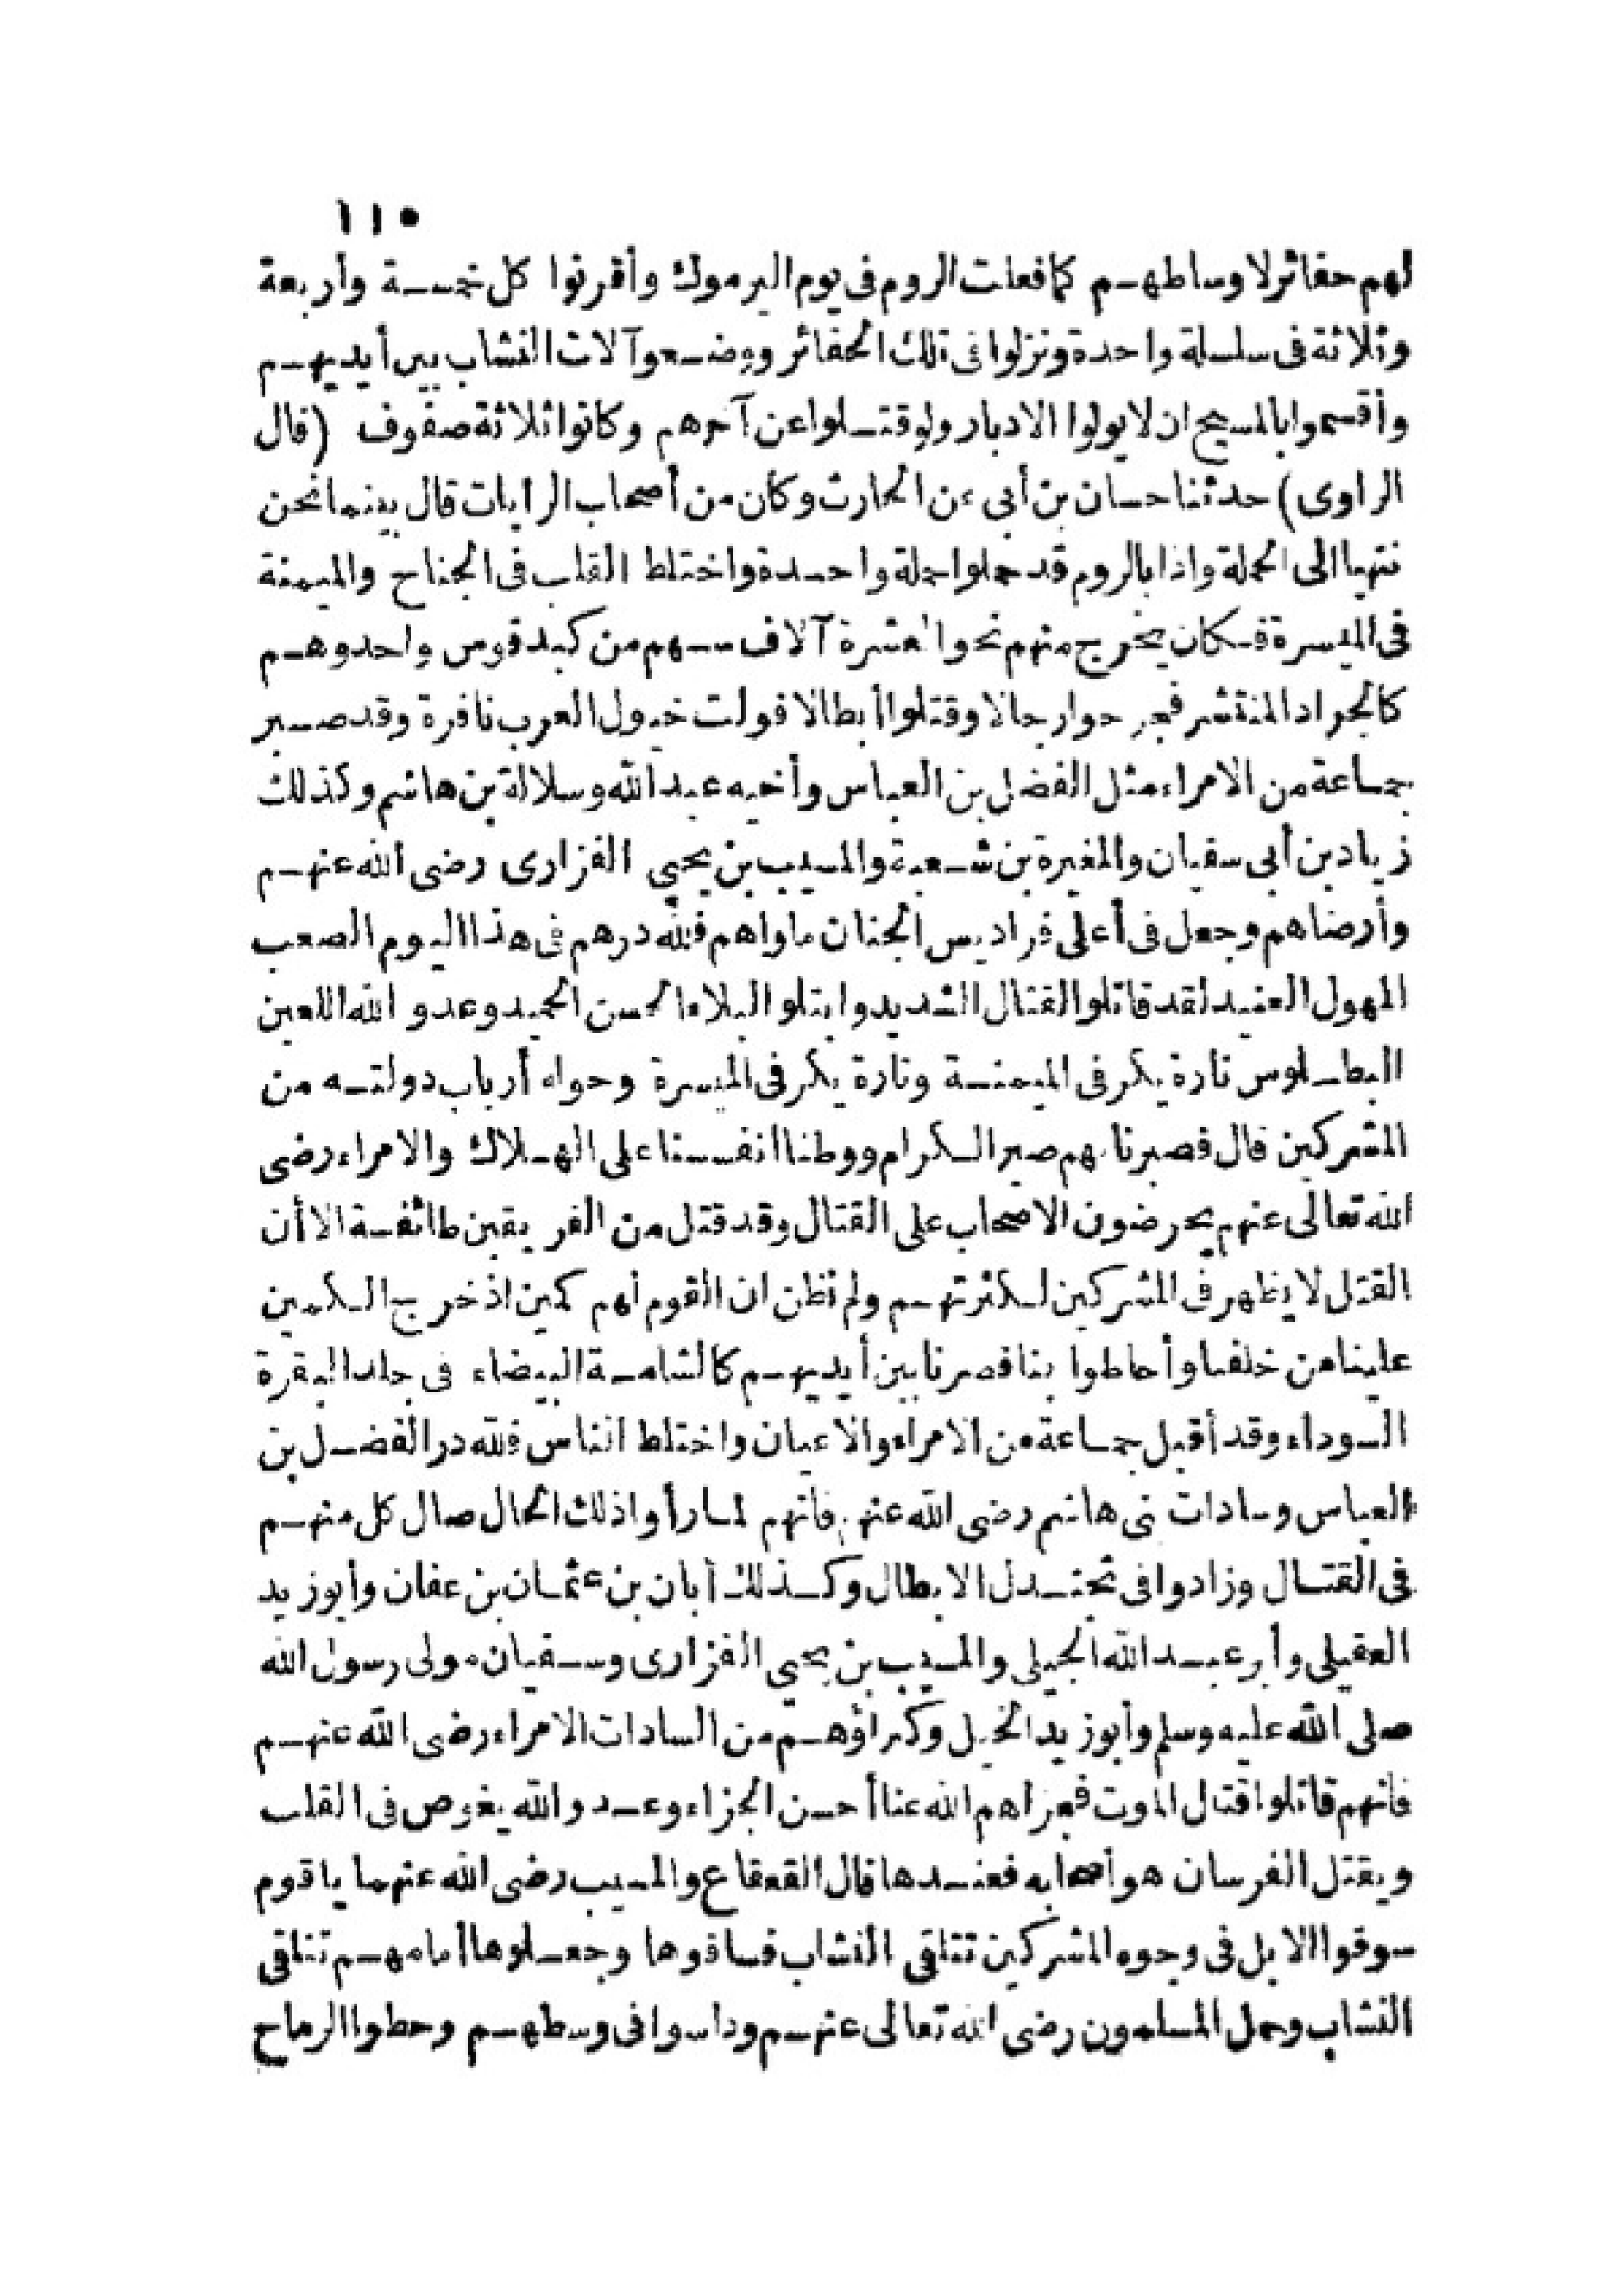 ١١٥
لهم حفائر لاوساطهم كما فعلت الروم فى يوم اليرموك وأقرنوا كل خمسة وأربعة
وثلاثة فى سلسلة واحدة ونزلوا فى تلك الحفائر ووضعوا آلات النشاب بين أيديهم
وأقسموا بالمسيح ان لا يولوا الادبار ولو قتلوا عن آخرهم وكانوا ثلاثة صفوف (قال
الراوى) حدثنا حسان بن أبى عن الحارث وكان من أصحاب الرايات قال بينما نحن
نتهيا الى الحملة واذا بالروم قد حملوا حملة واحدة واختلط القلب فى الجناح والميمنة
فى الميسرة فكان يخرج منهم نحوا لعشرة آلاف سهم من كبد قوس واحد وهم
كالجراد المنتشر فجرحوا رجالا وقتلوا أبطالا فولت خيول العرب نافرة وقد صبر
جماعة من الامراء مثل الفضل بن العباس وأخيه عبد الله وسلالة بن هاشم وكذلك
زياد بن أبى سفيان والمغيرة بن شعبة والمسيب بن يحيى الفزارى رضى الله عنهم
وأرضاهم وجعل فى أعلى فراديس الجنان ماواهم فلله درهم فى هذا اليوم الصعب
المهول العنيد لقد قاتلوا القتال الشديد وابتلوا البلاء الحسن الحميد وعدو الله اللعين
البطلوس تارة يكر فى الميمنة وتارة يكر فى الميسرة وحوله أرباب دولته من
المشركين قال فصبرنا لهم صبر الكرام ووطنا أنفسنا على الهلاك والامراء رضى
الله تعالى عنهم يحرضون الاصحاب على القتال وقد قتل من الفريقين طائفة الا أن
القتل لا يظهر فى المشركين لكثرتهم ولم نظن ان القوم لهم كمين اذ خرج الكمين
علينا من خلفنا وأحاطوا بنا فصرنا بين أيديهم كالشامة البيضاء فى جلد البقرة
السوداء وقد أقبل جماعة من الامراء والاعيان واختلط الناس فلله در الفضل بن
العباس وسادات بنى هاشم رضى الله عنهم فانهم لما رأوا ذلك الحال صال كل منهم
فى القتال وزادوا فى تجندل الابطال وكذلك أبان بن عثمان بن عفان وأبو زيد
العقيلى وأبو عبد الله الجيلى والمسيب بن يحيى الفزارى وسفيان مولى رسول الله
صلى الله عليه وسلم وأبو زيد الخيل وكبراؤهم من السادات الامراء رضى الله عنهم
فانهم قاتلوا قتال الموت فجزاهم الله عنا أحسن الجزاء وعدو الله يغوص فى القلب
ويقتل الفرسان هو وأصحابه فعندها قال القعقاع والمسيب رضى الله عنهما يا قوم
سوقوا الابل فى وجوه المشركين تتلقى النشاب فساقوها وجعلوها أمامهم تتلقى
النشاب وحمل المسلمون رضى الله تعالى عنهم وداسوا فى وسطهم وحطوا الرماح